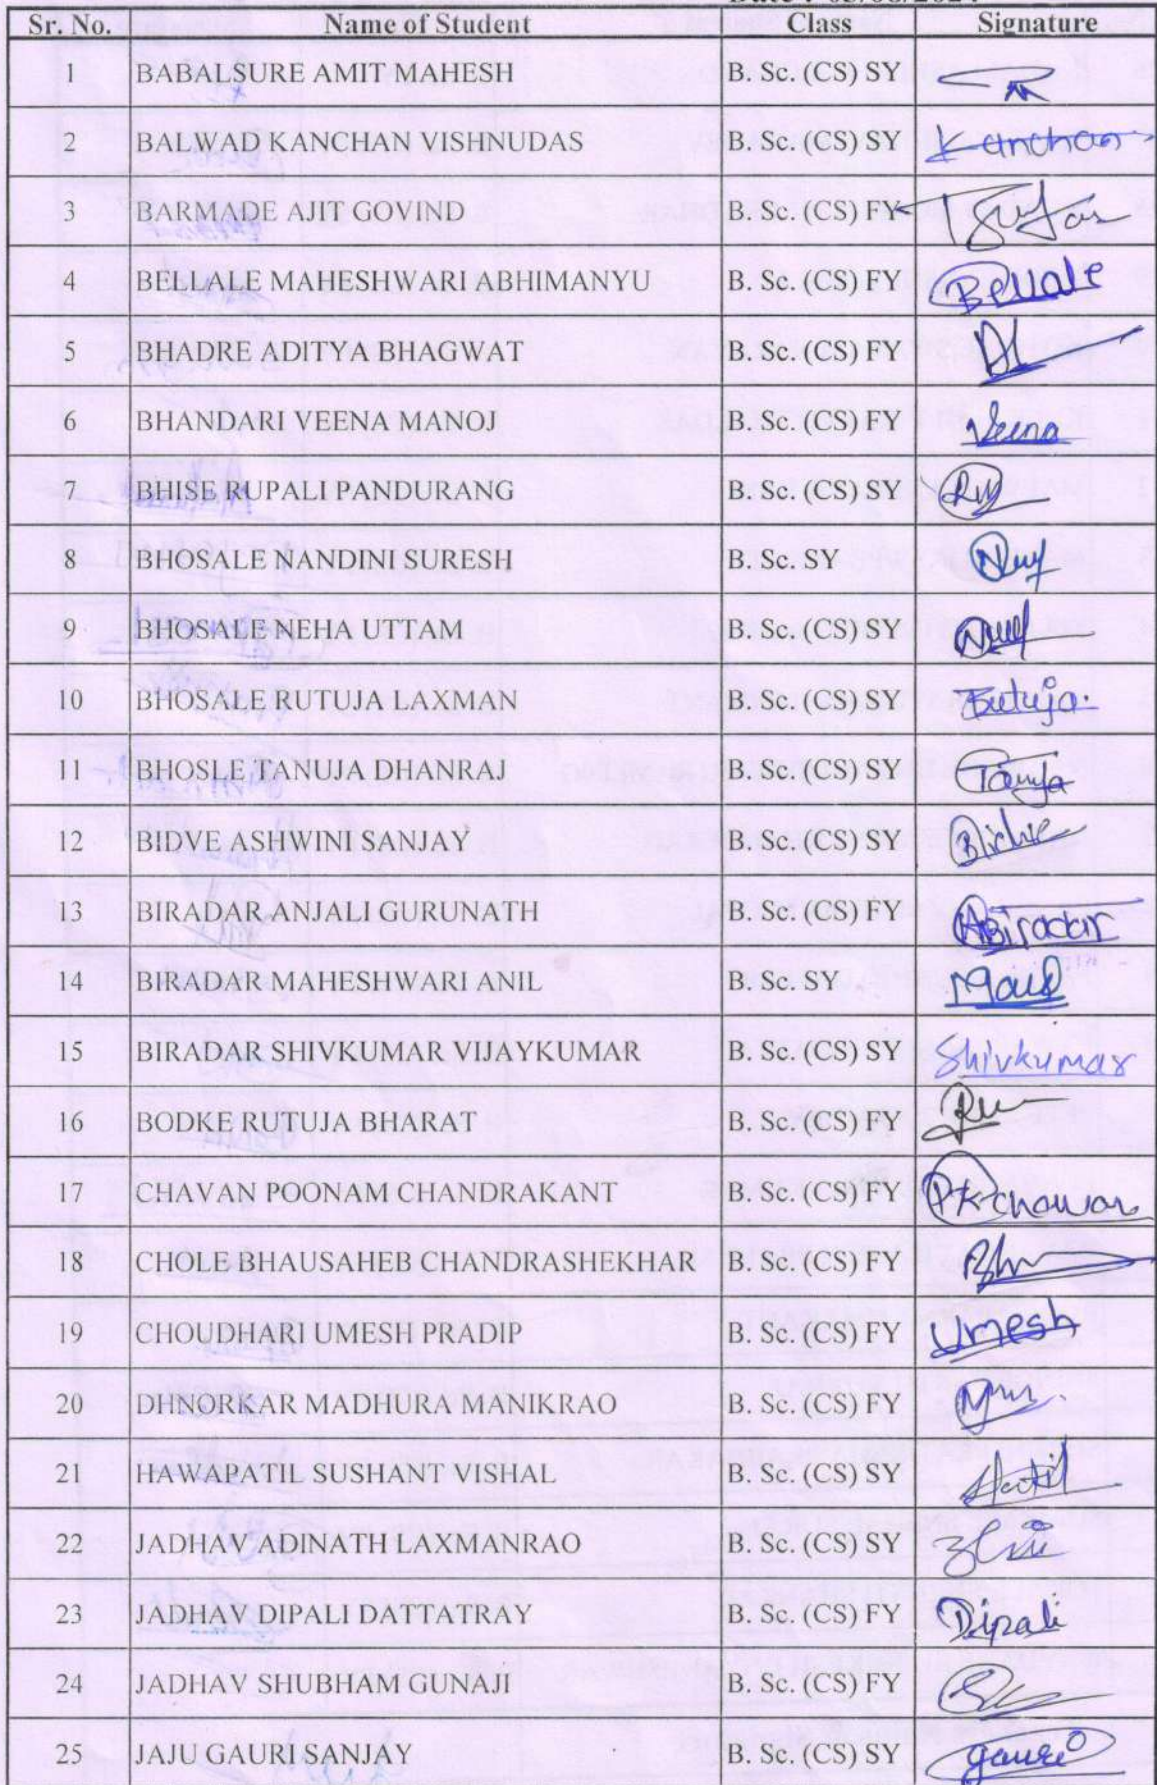 Sr. No. Name of Student Class Signature
1 BABALSURE AMIT MAHESH B. Sc. (CS) SY
2 BALWAD KANCHAN VISHNUDAS B. Sc. (CS) SY Kanchan
3 BARMADE AJIT GOVIND B. Sc. (CS) FY
4 BELLALE MAHESHWARI ABHIMANYU B. Sc. (CS) FY Bellale
5 BHADRE ADITYA BHAGWAT B. Sc. (CS) FY
6 BHANDARI VEENA MANOJ B. Sc. (CS) FY Veena
7 BHISE RUPALI PANDURANG B. Sc. (CS) SY
8 BHOSALE NANDINI SURESH B. Sc. SY
9 BHOSALE NEHA UTTAM B. Sc. (CS) SY
10 BHOSALE RUTUJA LAXMAN B. Sc. (CS) SY Rutuja.
11 BHOSLE TANUJA DHANRAJ B. Sc. (CS) SY Tanuja
12 BIDVE ASHWINI SANJAY B. Sc. (CS) SY Bidve
13 BIRADAR ANJALI GURUNATH B. Sc. (CS) FY ABiradar
14 BIRADAR MAHESHWARI ANIL B. Sc. SY
15 BIRADAR SHIVKUMAR VIJAYKUMAR B. Sc. (CS) SY Shivkumar
16 BODKE RUTUJA BHARAT B. Sc. (CS) FY
17 CHAVAN POONAM CHANDRAKANT B. Sc. (CS) FY PKchawan
18 CHOLE BHAUSAHEB CHANDRASHEKHAR B. Sc. (CS) FY
19 CHOUDHARI UMESH PRADIP B. Sc. (CS) FY Umesh
20 DHNORKAR MADHURA MANIKRAO B. Sc. (CS) FY
21 HAWAPATIL SUSHANT VISHAL B. Sc. (CS) SY
22 JADHAV ADINATH LAXMANRAO B. Sc. (CS) SY
23 JADHAV DIPALI DATTATRAY B. Sc. (CS) FY Dipali
24 JADHAV SHUBHAM GUNAJI B. Sc. (CS) FY
25 JAJU GAURI SANJAY B. Sc. (CS) SY gauri